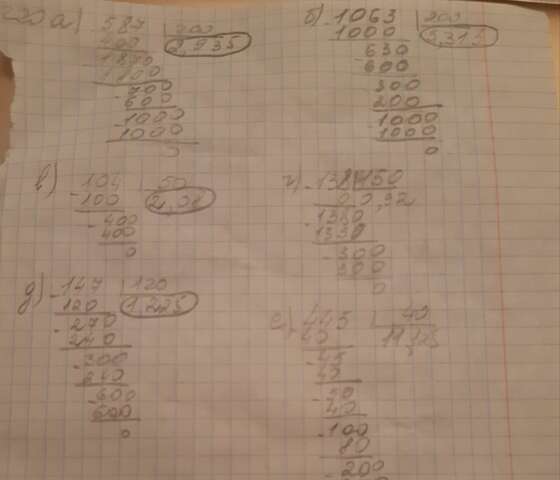 а) 587 200
400 2,935
1870
1800
-700
600
-1000
1000
0
б) -1063 200
1000 5,315
630
-600
300
200
-1000
1000
0
в) 104 50
-100 2,08
-400
400
0
г) -138 150
0 0,92
-1380
1350
-300
300
0
д) -147 120
120 1,225
-270
240
-300
240
-600
600
0
е) 445 40
40
-45
40
-50
40
-100
80
-200